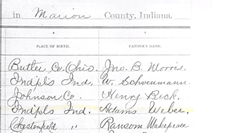 in Marion County, Indiana.
PLACE OF BIRTH. FATHER'S NAME.
Butler Co. Ohio. Jno. B. Morris
Indpls Ind. W. Scheumann
Johnson Co. Henry Beck
Indpls Ind. Adams Weber
Chesterfield " Ransom